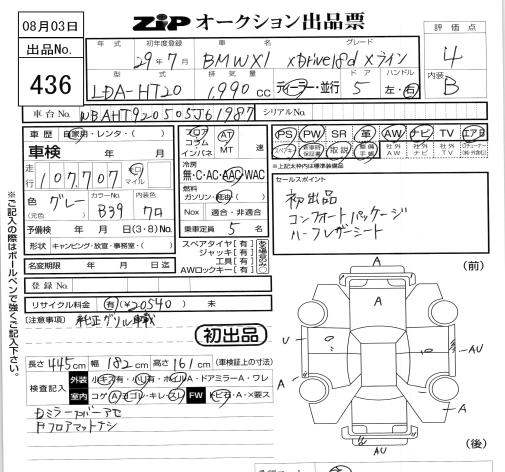 08月03日
ZIP オークション出品票
出品No. 436
年式 初年度登録 車名 グレード
29年7月 BMWX1 xDrive18d xライン
型式 排気量 ディーラー・並行 ドア ハンドル
LDA-HT20 1,990cc 5 左・右
評価点 4
内装 B
車台No. WBAHT920505J61987 シリアルNo.
車歴 自家用・レンタ・( )
車検 年 月
走行 107,707 キロ マイル
色 グレー カラーNo. B39 内装色 クロ
(元色: )
予備検 年 月 日(3・8)No.
形状 キャンピング・放宣・事務室・( )
名変期限 年 月 日迄
登録No.
リサイクル料金 (有)(¥20540) 未
フロア コラム インパネ AT MT 速
冷房
無・C・AC・AAC・WAC
燃料
ガソリン・軽油・( )
Nox 適合・非適合
乗車定員 5 名
スペアタイヤ[有]
ジャッキ[有]
工具[有]
AWロックキー[有]
有る場合のみ○
PS PW SR 革 AW ナビ TV エアB
スペアキー 新車時保証書 取説 整備手帳 社外AW 社外ナビ 社外TV
※上記太枠内は標準装備品
セールスポイント
初出品
コンフォートパッケージ
ハーフレザーシート
(注意事項) 純正グリル車載
初出品
長さ 445cm 幅 182cm 高さ 161cm (車検証上の寸法)
検査記入 外装 小キズ有・小U有・ホイルA・ドアミラーA・ワレ
室内 コゲ・A・ヨゴレ・キレ・スレ FW トビ石・A・X要ス
Dミラーカバー
Fフロアマットナシ
※ご記入の際はボールペンで強くご記入下さい。
(前)
A
A
U
AU
A
A
AU
(後)